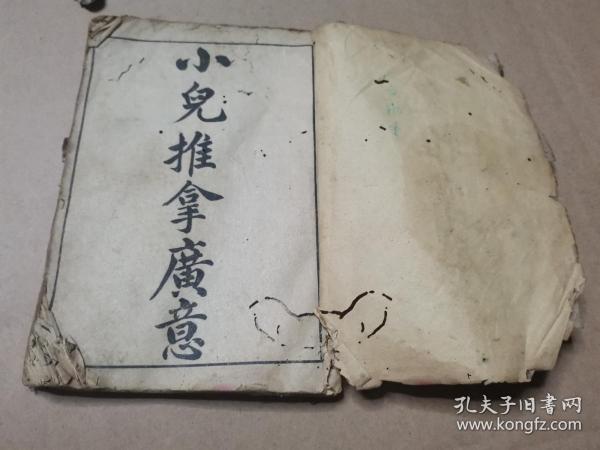 小兒推拿廣意
孔夫子旧書网
www.kongfz.com